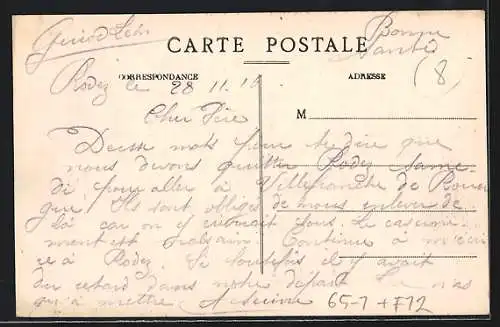 Bonne
Santé
(8)
CARTE POSTALE
CORRESPONDANCE
ADRESSE
Rodez le 28 11. 16
M
Cher Père
Deux mots pour te dire que
nous devons quitter Rodez Same-
di pour aller à Villefranche de Rouer
gue Ils sont obligés de nous enlever de
là car on y crèverait tous. Le caserne-
ment est malsain. Continue à m'écri
re à Rodez. Si toutefois il y avait
du retard dans notre départ Tu n'as
qu'à mettre A suivre
65-1 + F12